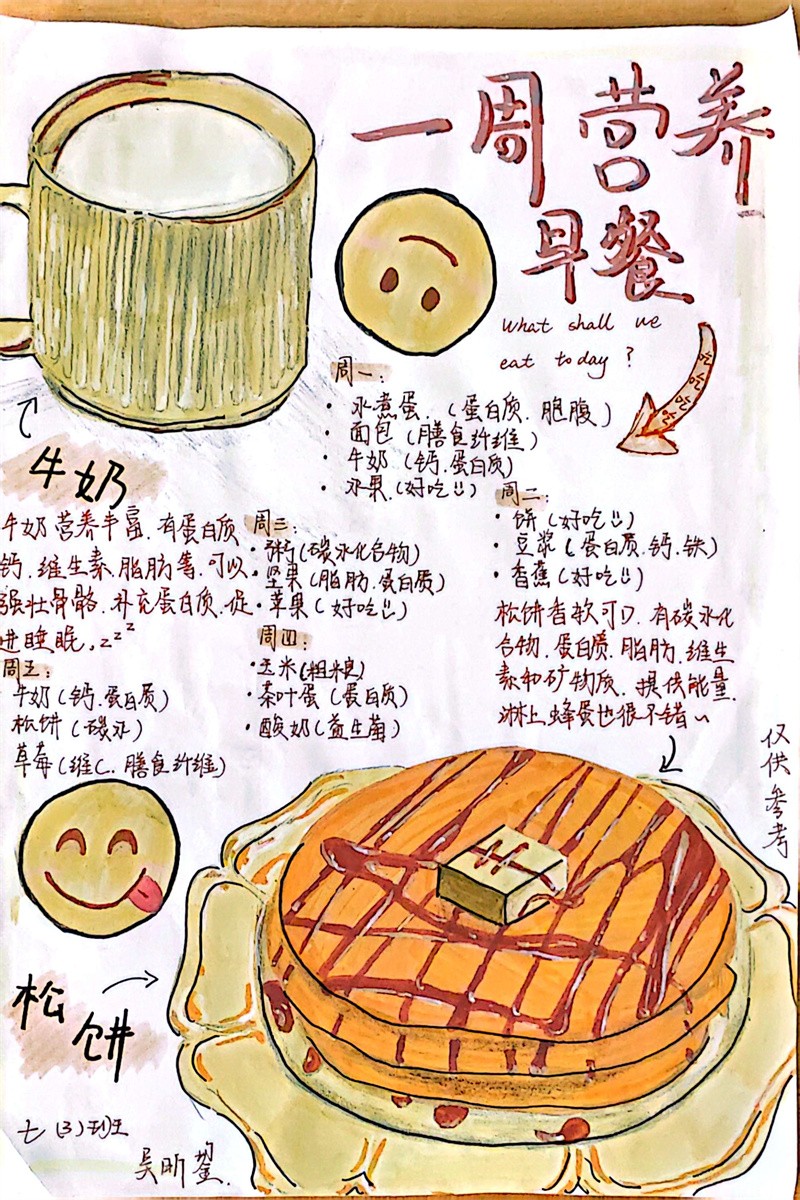 一周营养
早餐
What shall we
eat today ?
吃吃吃吃
周一:
· 水煮蛋. (蛋白质. 胞腹)
· 面包 (膳食纤维)
· 牛奶 (钙.蛋白质)
· 水果.(好吃)
周二:
· 饼 (好吃)
· 豆浆 (蛋白质.钙.铁)
· 香蕉 (好吃)
松饼香软可口. 有碳水化
合物. 蛋白质. 脂肪. 维生
素和矿物质. 提供能量.
淋上蜂蛋也很不错~
牛奶
牛奶营养丰富.有蛋白质
钙.维生素.脂肪等.可以
强壮骨骼.补充蛋白质.促
进睡眠,zzz
周三:
· 粥(碳水化合物)
· 坚果(脂肪.蛋白质)
· 苹果(好吃)
周四:
· 玉米(粗粮)
· 茶叶蛋(蛋白质)
· 酸奶(益生菌)
周五:
牛奶(钙.蛋白质)
松饼(碳水)
草莓(维C. 膳食纤维)
仅供参考
松饼
七(3)班
吴昕